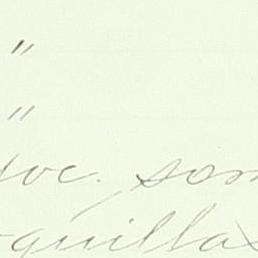 "
"
voc. som
quillas